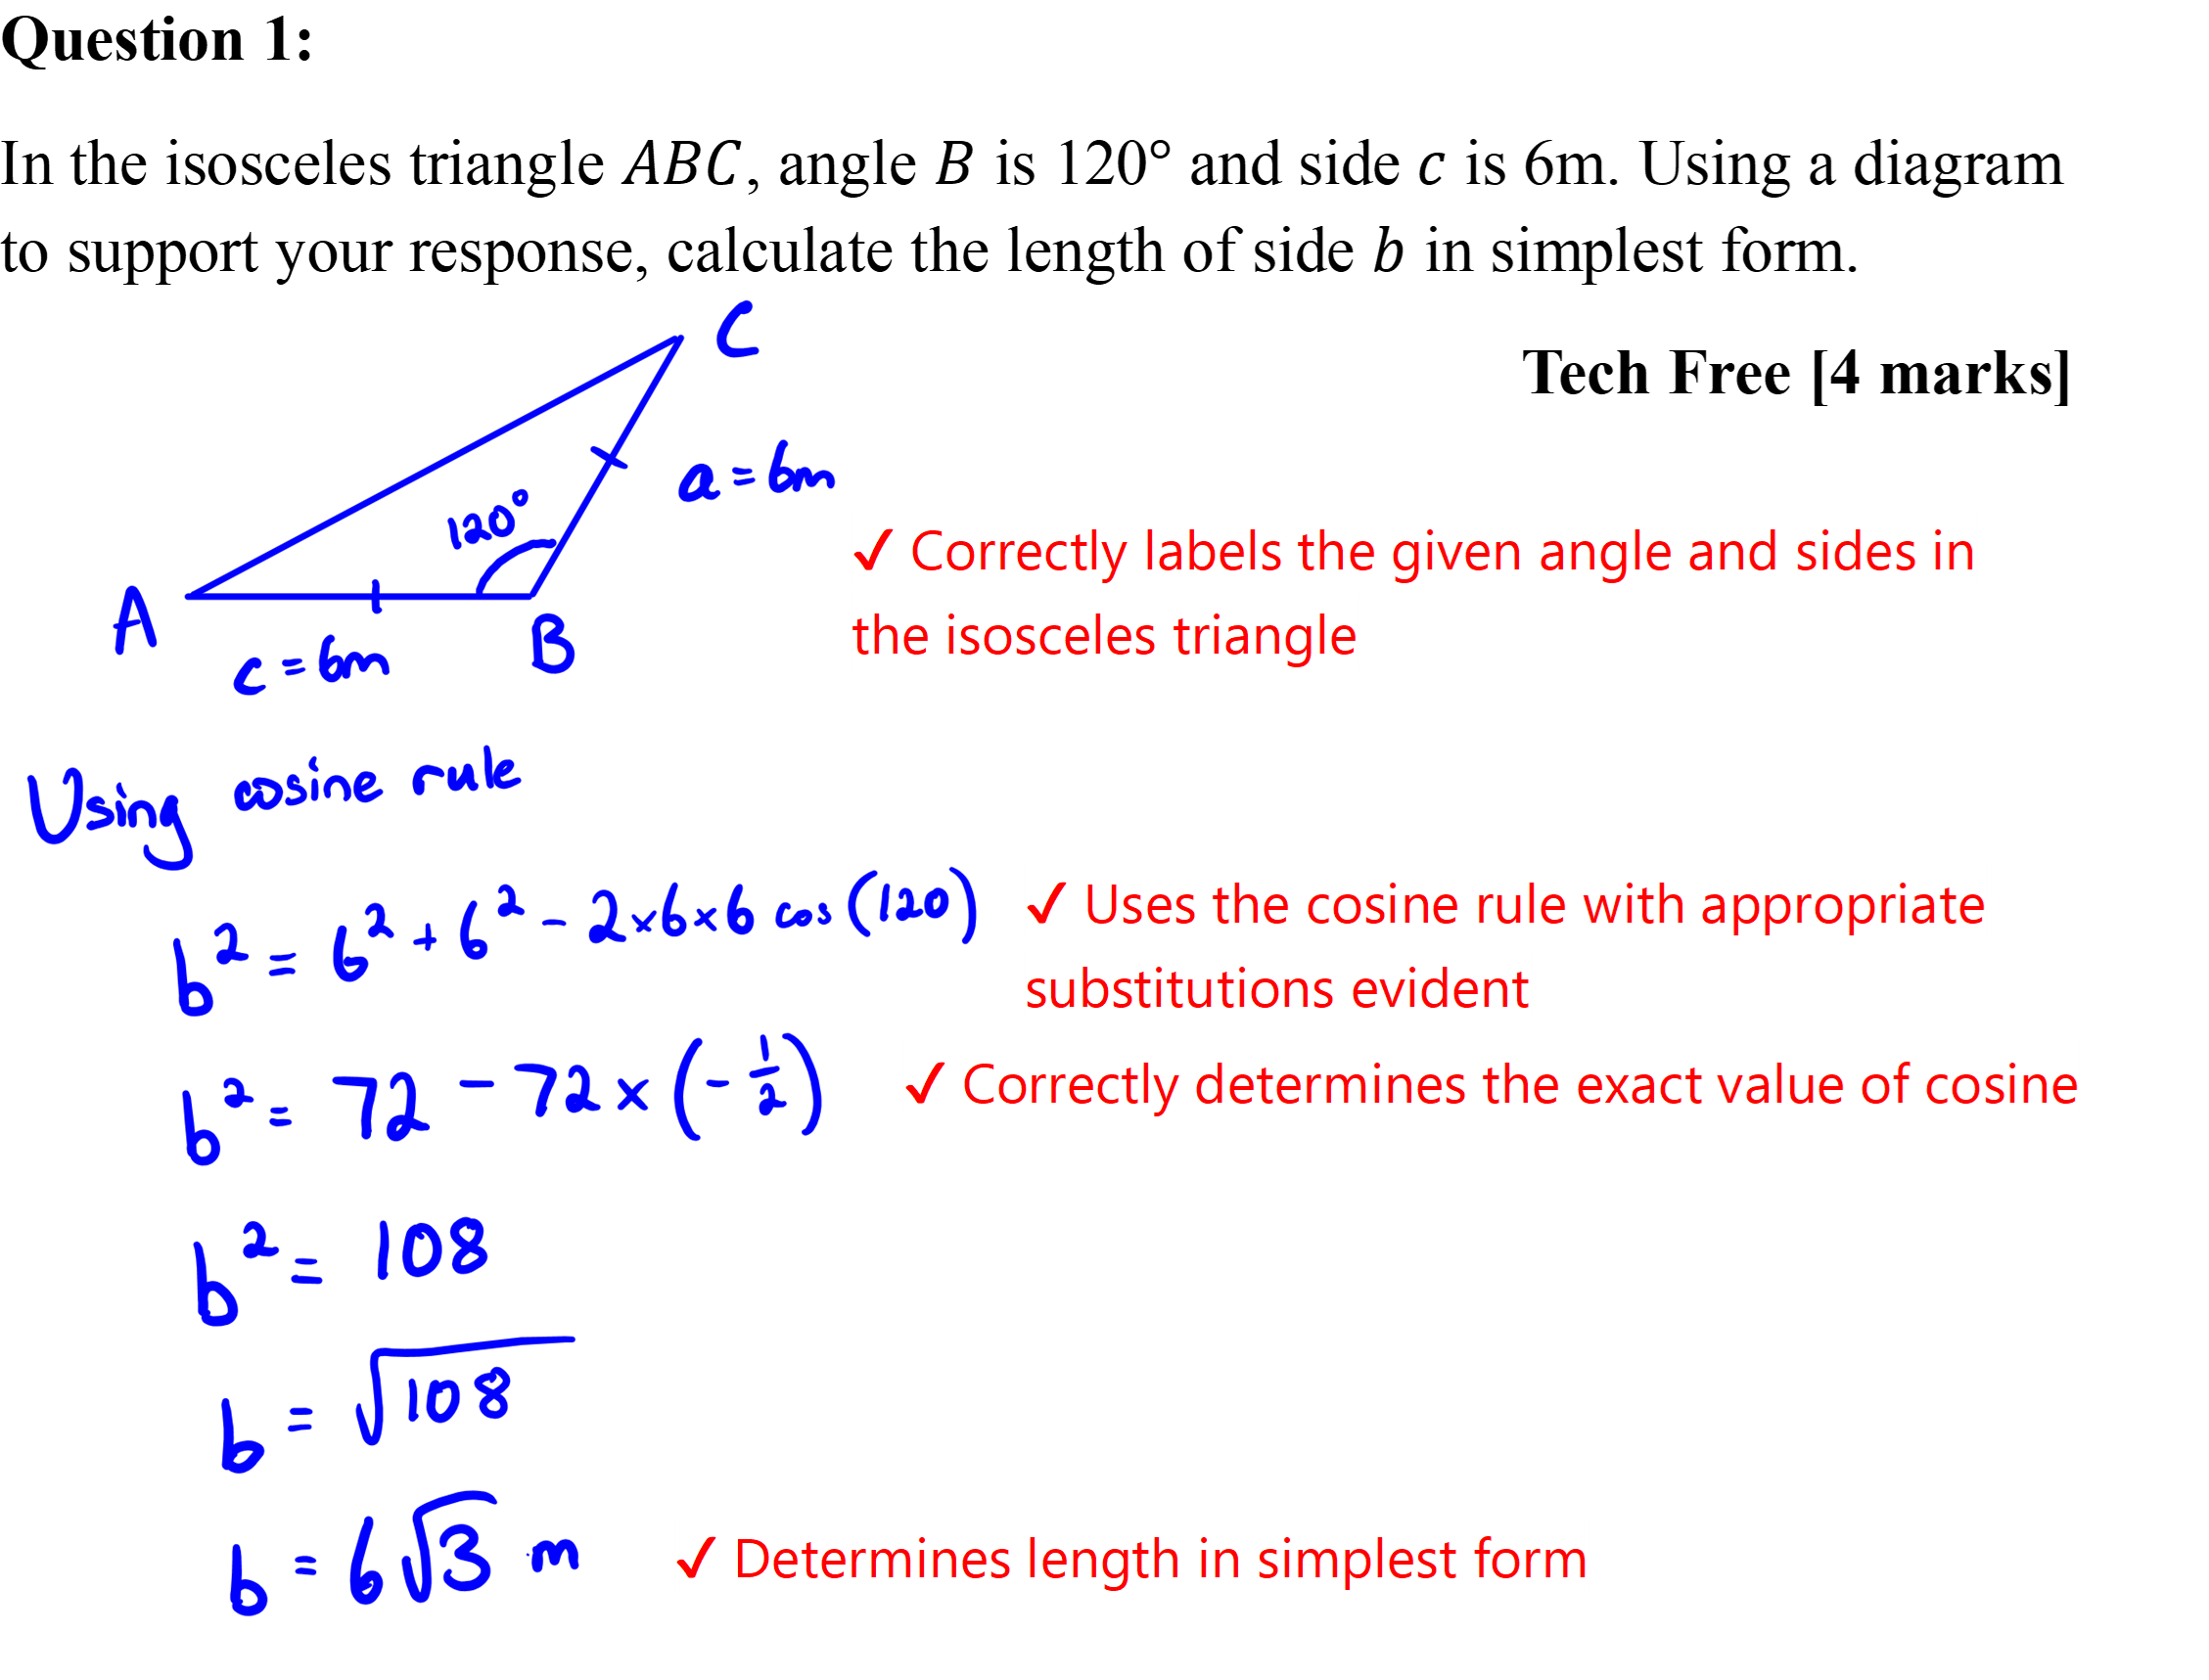 Question 1:
In the isosceles triangle ABC, angle B is 120° and side c is 6m. Using a diagram
to support your response, calculate the length of side b in simplest form.
C
Tech Free [4 marks]
a = 6m
120°
✓ Correctly labels the given angle and sides in
the isosceles triangle
A
B
c = 6m
Using cosine rule
b² = 6² + 6² − 2×6×6 cos (120)
✓ Uses the cosine rule with appropriate
substitutions evident
b² = 72 − 72 × (−1/2)
✓ Correctly determines the exact value of cosine
b² = 108
b = √108
b = 6√3 m
✓ Determines length in simplest form